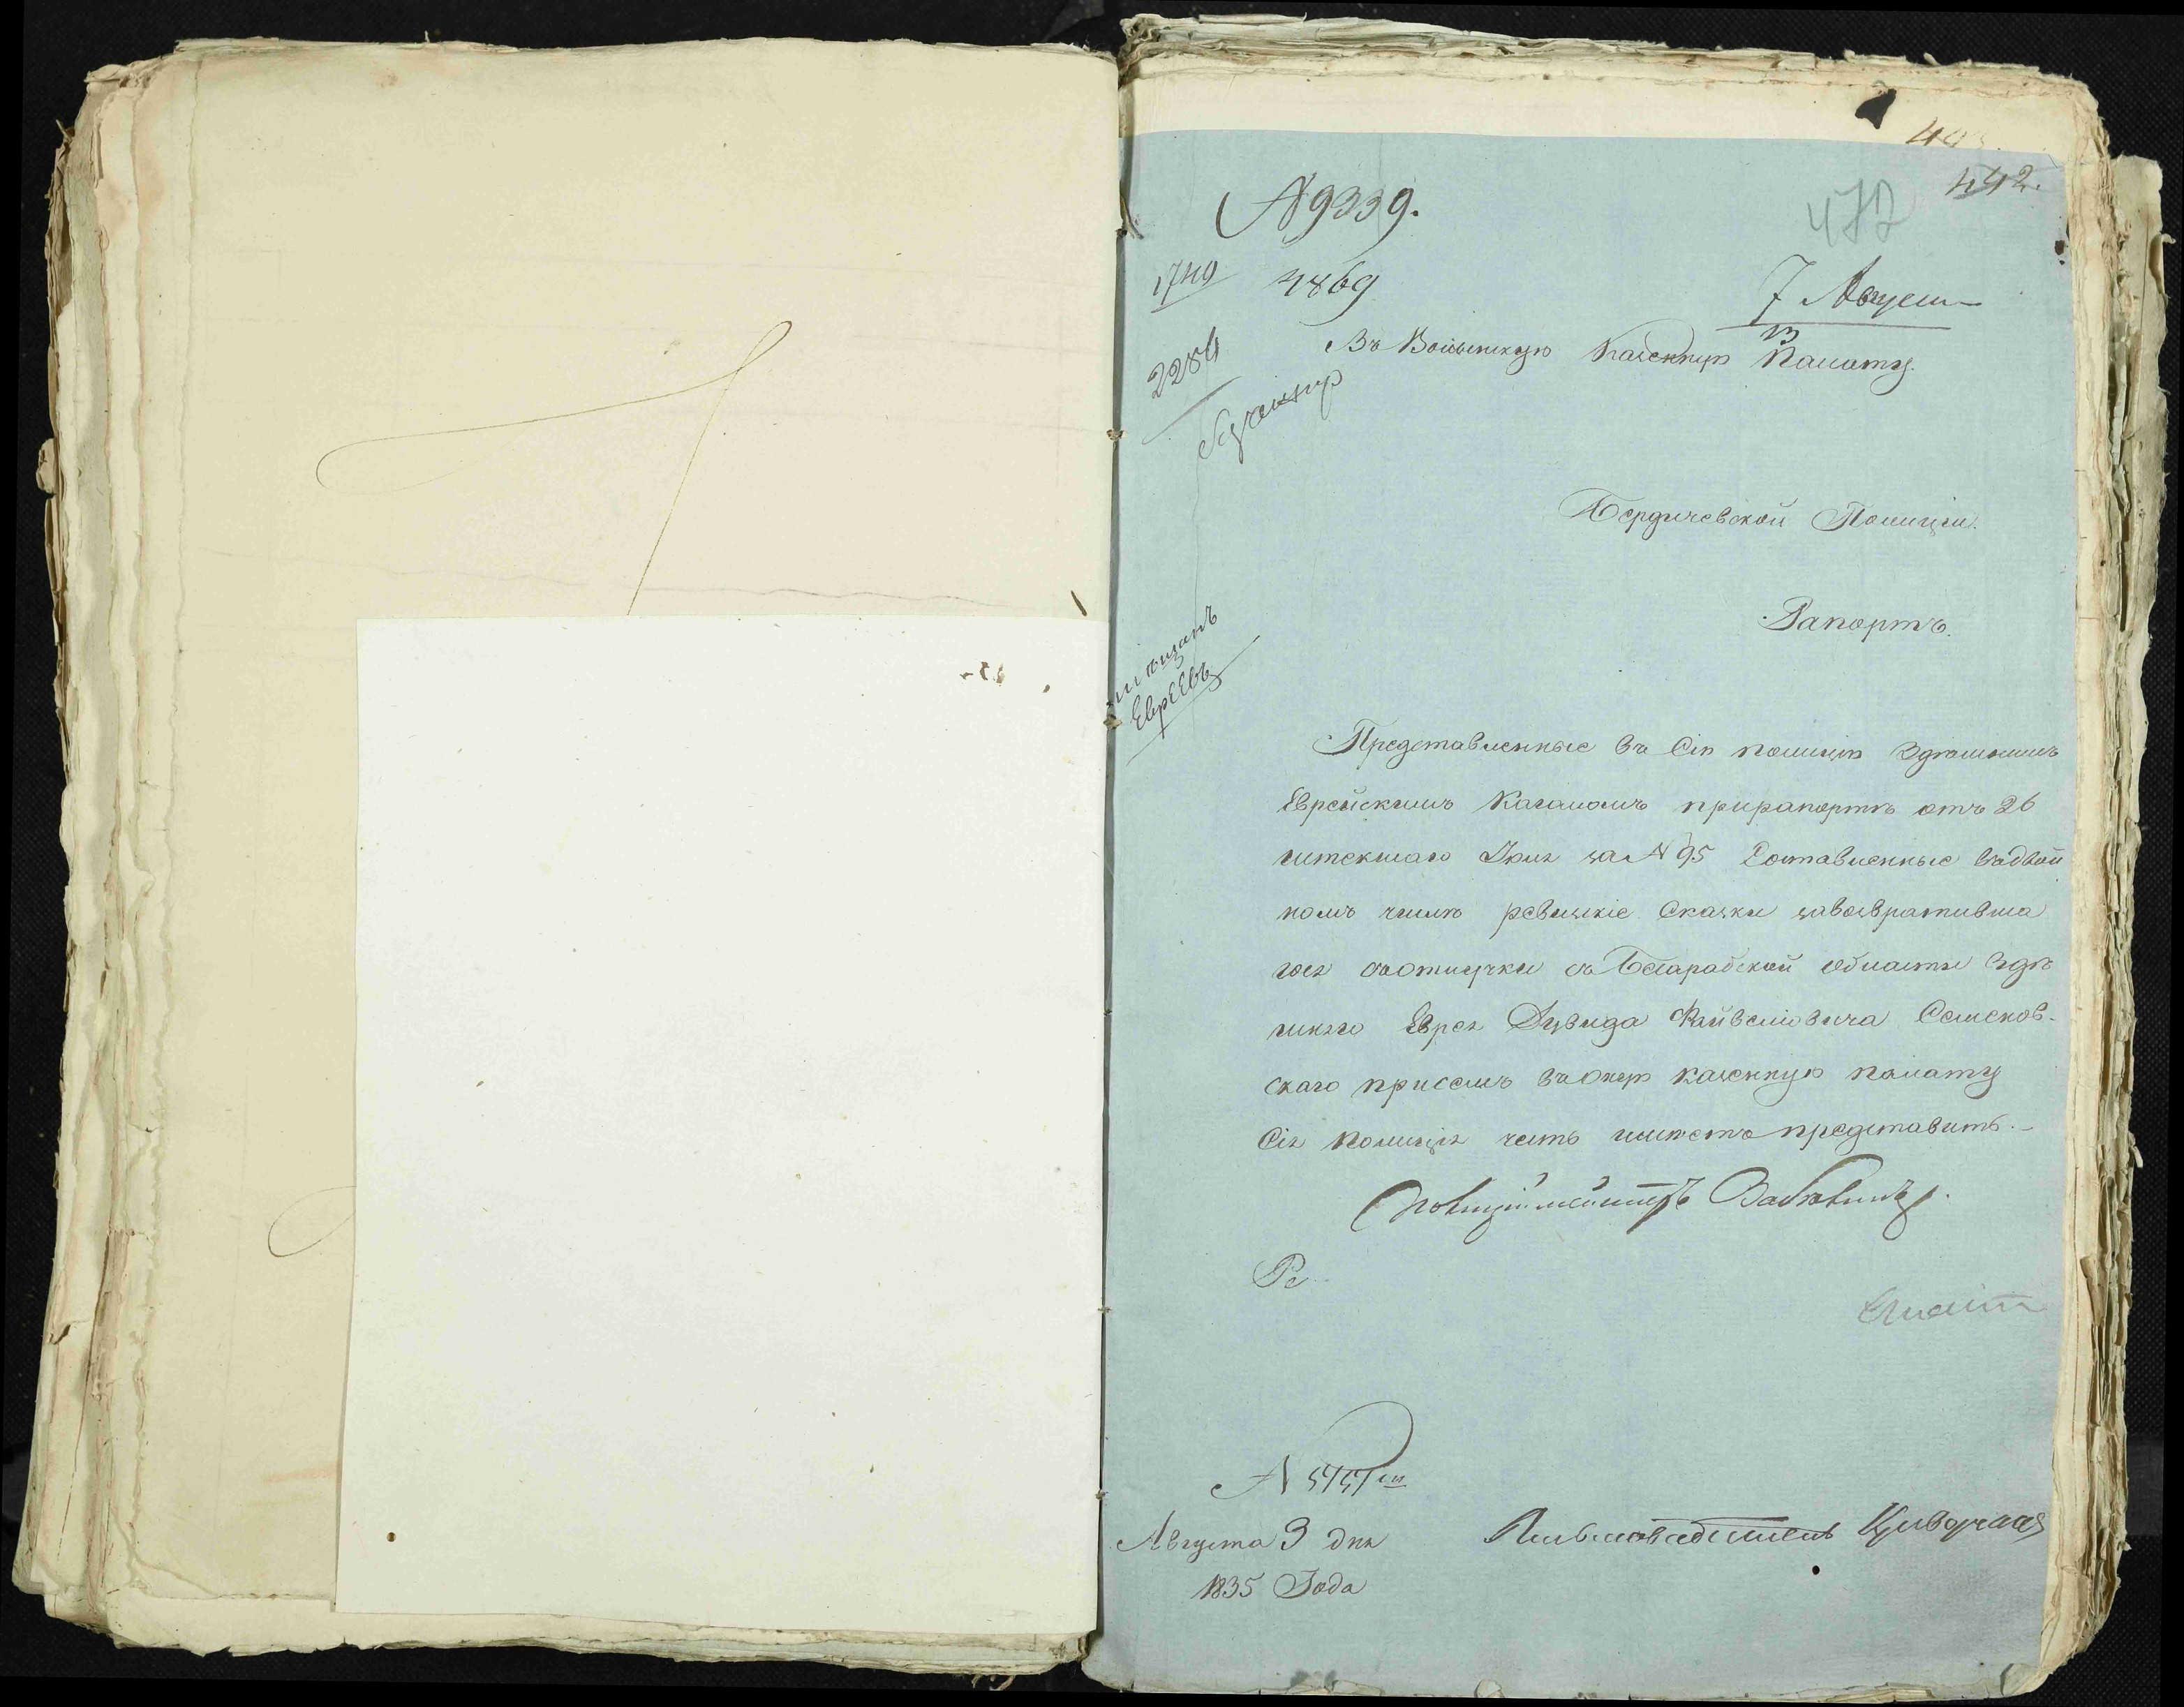 443.
442.
472
N 9339.
1740 4869
7 Августа
13
Въ Волынскую Казенную Палату.
2284
Бердичевской Полиціи.
Рапортъ.
мѣщанъ
Евреевъ
Представленные въ Сію полицію Здѣшнимъ
Еврейскимъ Кагаломъ прирапортѣ отъ 26
истекшаго Іюля за N 95 Составленные въ двой
номъ числѣ ревизскіе Сказки завозвративша
гося съотлучки съ Бесарабской области Здѣ
шняго Еврея Дувида Файвелiовича Семенов-
скаго присемъ въ Оную казенную палату
Сія Полиція честь имѣетъ представить.-
Полиціймейстеръ
N 5757
Августа 3 дня
1835 Года
Письмоводитель